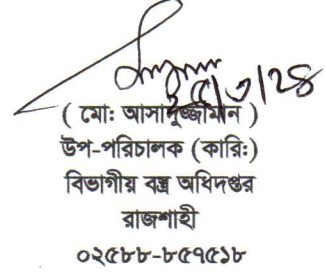 ২৫/৩/২৪
( মো: আসাদুজ্জামান )
উপ-পরিচালক (কারি:)
বিভাগীয় বস্ত্র অধিদপ্তর
রাজশাহী
০২৫৮৮-৮৫৭৫১৮